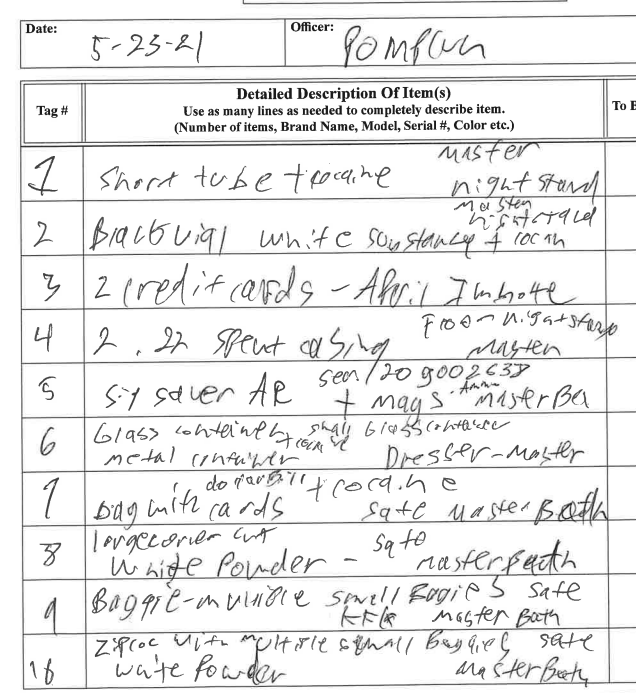 Date:
5-23-21
Officer:
Tag #
Detailed Description Of Item(s)
Use as many lines as needed to completely describe item.
(Number of items, Brand Name, Model, Serial #, Color etc.)
To B
Master
1 Short tube + cocaine night stand
Master
2 Black vial white substance +
3 2 credit cards - April
From nightstand
4 2 .22 spent casing Master
5 AR + mags Ammo Master
6 Glass container small Glass container
metal container Dresser-Master
dollar bill + cocaine
7 bag with cards safe Master Bath
8 large safe
White Powder - Master Bath
9 Baggie-multiple small Bagies safe
Master Bath
Ziploc with multiple small Baggies safe
10 white Powder Master Bath